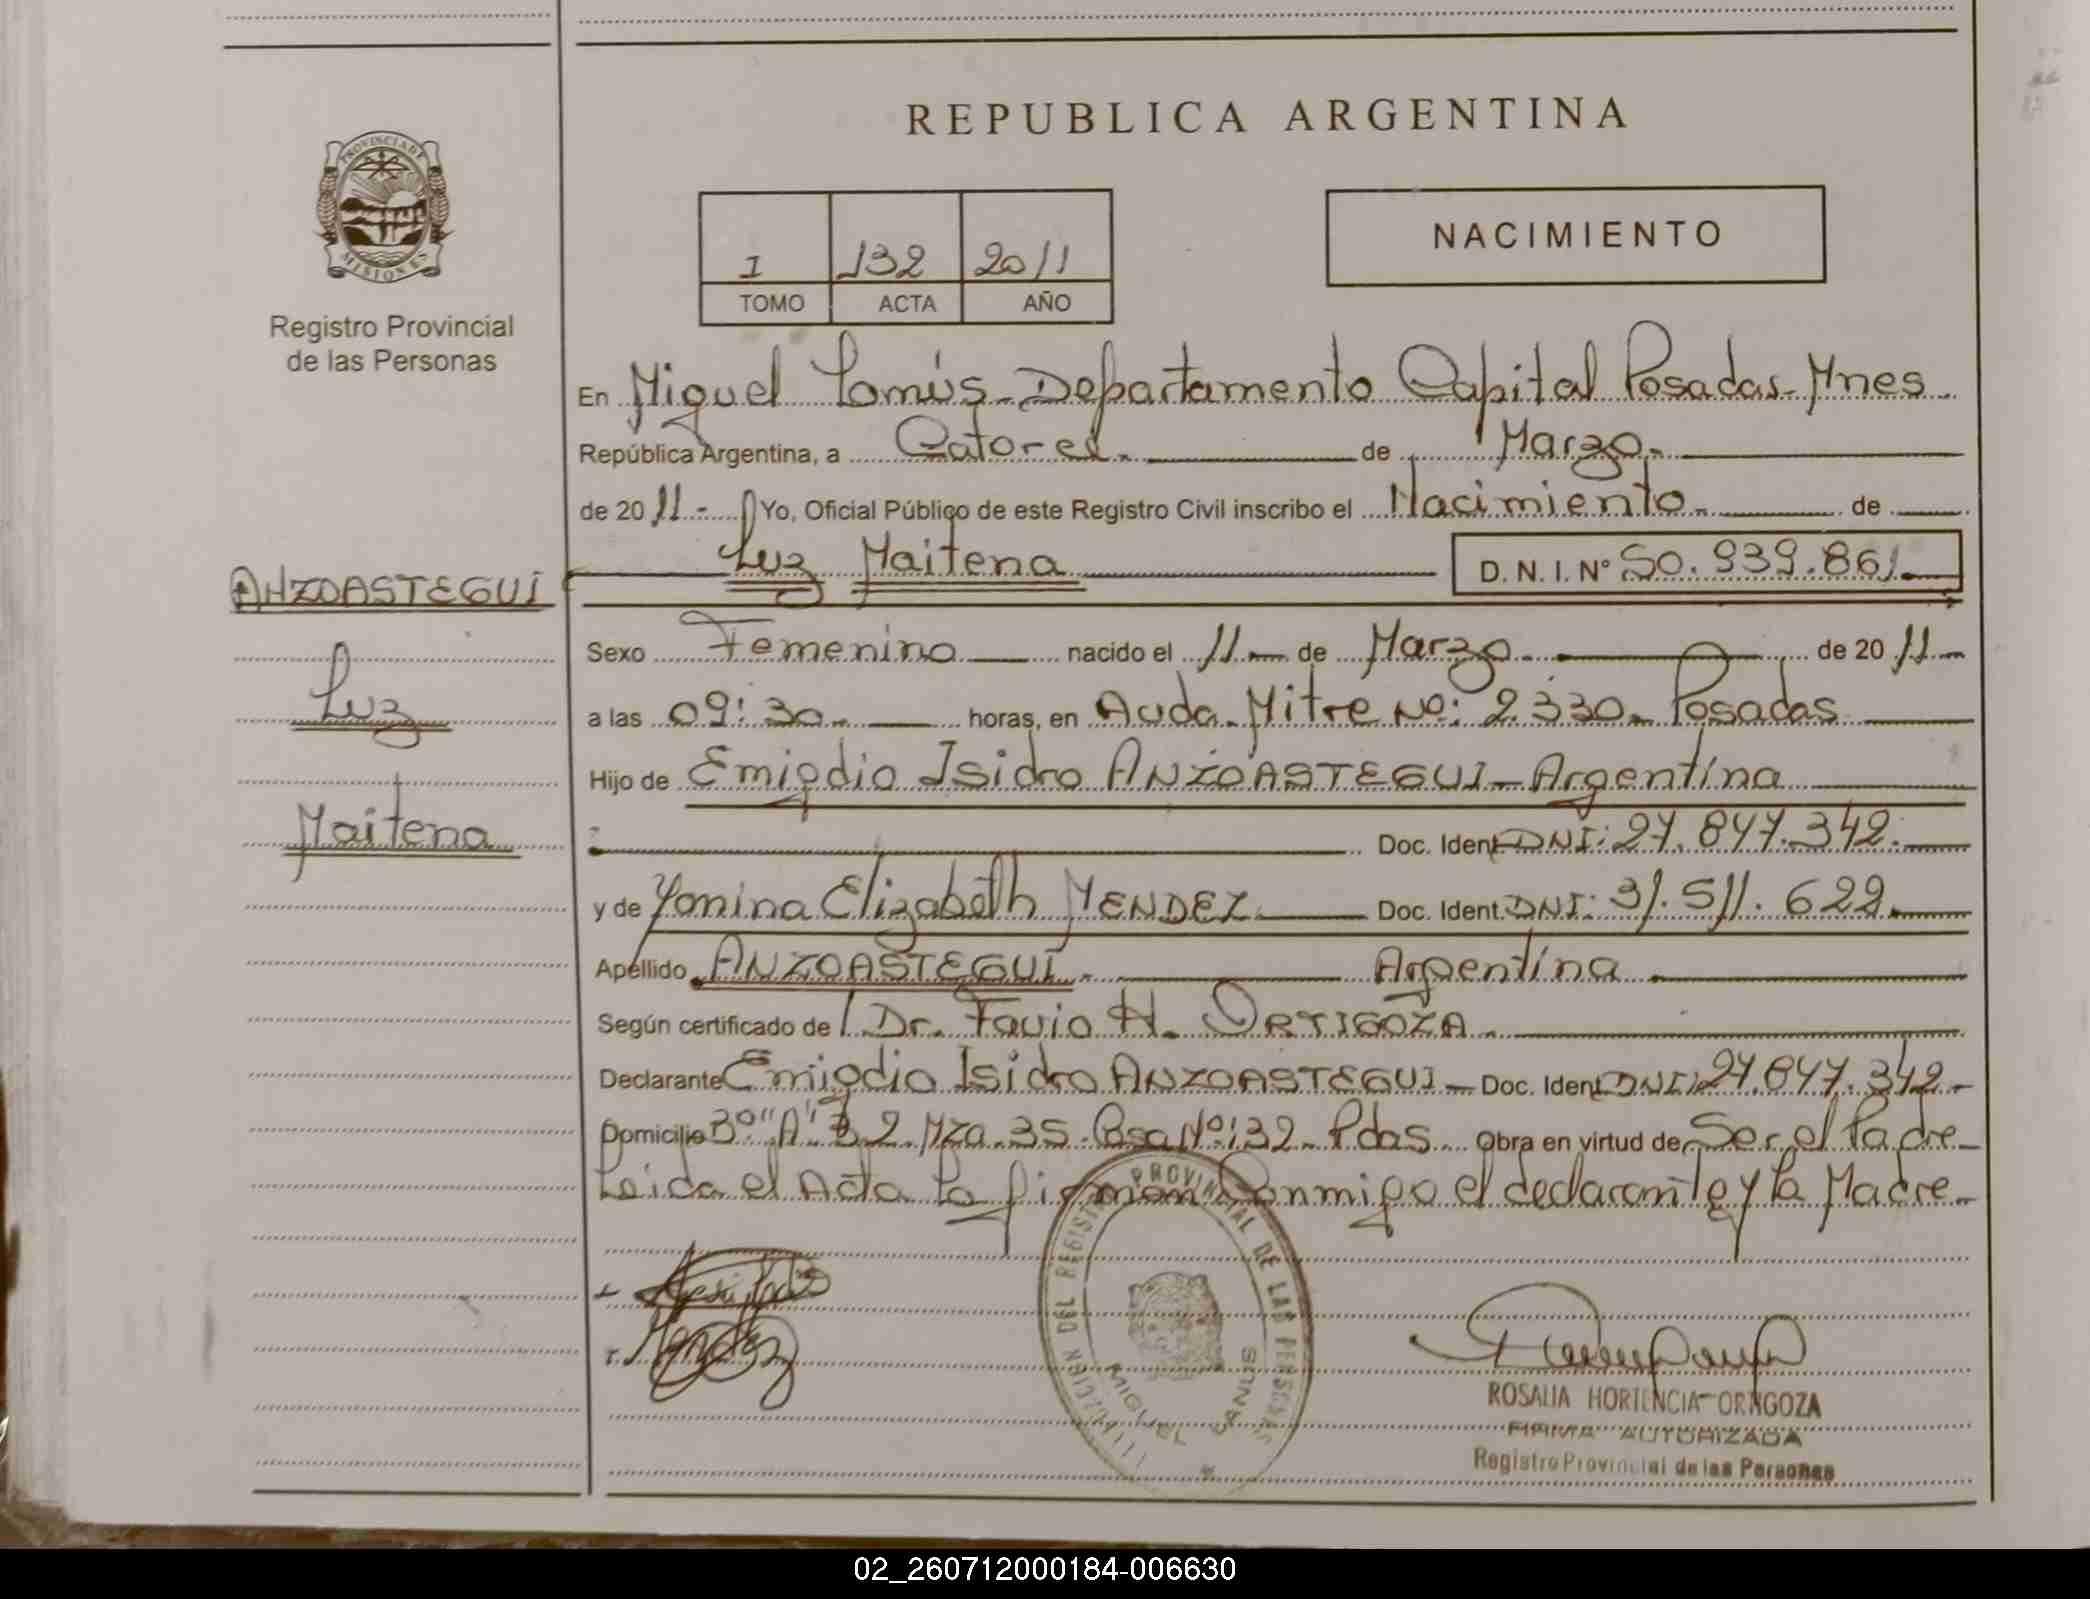 REPUBLICA ARGENTINA
PROVINCIA DE
MISIONES
Registro Provincial
de las Personas
1 132 2011
TOMO ACTA AÑO
NACIMIENTO
En Miguel Lanús - Departamento Capital Posadas - Mnes.
República Argentina, a Catorce. de Marzo.
de 20 11.- Yo, Oficial Público de este Registro Civil inscribo el Nacimiento. de
Luz Maitena D. N. I. Nº 50.939.861.
ANZOASTEGUI
Luz
Maitena
Sexo Femenino nacido el 11 de Marzo. de 20 11.
a las 09:30. horas, en Avda. Mitre Nº: 2.330. Posadas
Hijo de Emigdio Isidro ANZOASTEGUI - Argentina
Doc. Ident. DNI: 27.847.342.
y de Yanina Elizabeth MENDEZ Doc. Ident. DNI: 31.511.622.
Apellido ANZOASTEGUI. Argentina
Según certificado de Dr. Favio H. ORTIGOZA.
Declarante Emigdio Isidro ANZOASTEGUI - Doc. Ident. DNI: 27.847.342 -
Domicilio Bº "A" 3 2 Mza. 35 - Casa Nº: 32 - Pdas. Obra en virtud de Ser el Padre -
Leida el Acta la firman Conmigo el declarante y la Madre -
PROVINCIAL DE LAS PERSONAS
DEL REGISTRO
MIGUEL LANUS
ROSALIA HORTENCIA ORAGOZA
FIRMA AUTORIZADA
Registro Provincial de las Personas
02_260712000184-006630